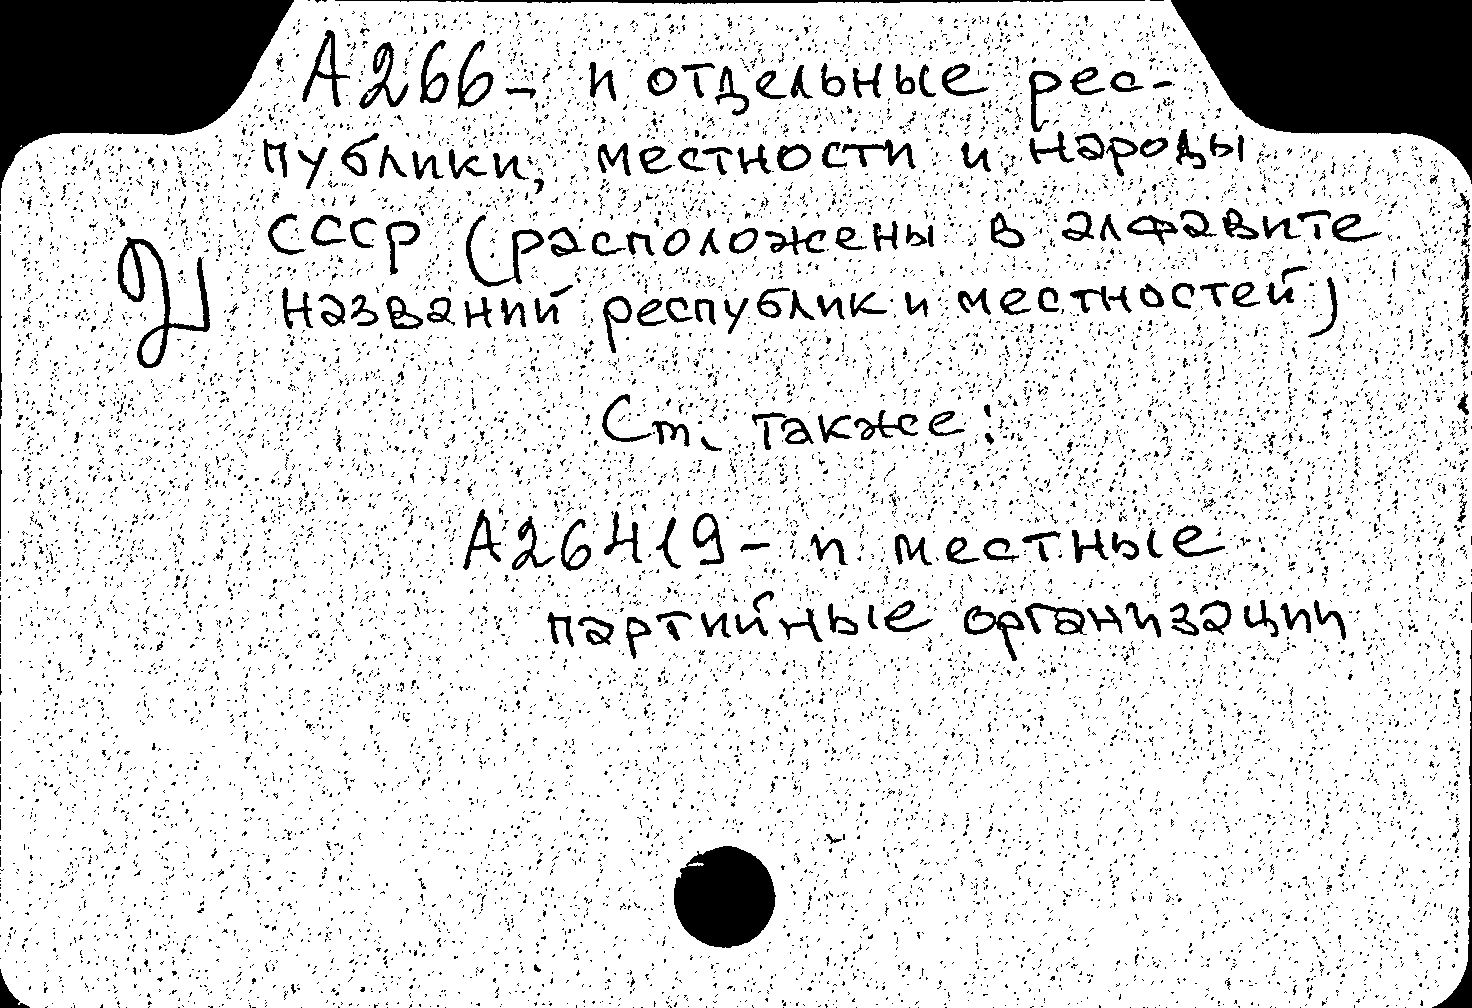 А266 - и отдельные рес-
публики, местности и народы
СССР (расположены в алфавите
названий республик и местностей)
См. также:
А26419 - и местные
партийные организации